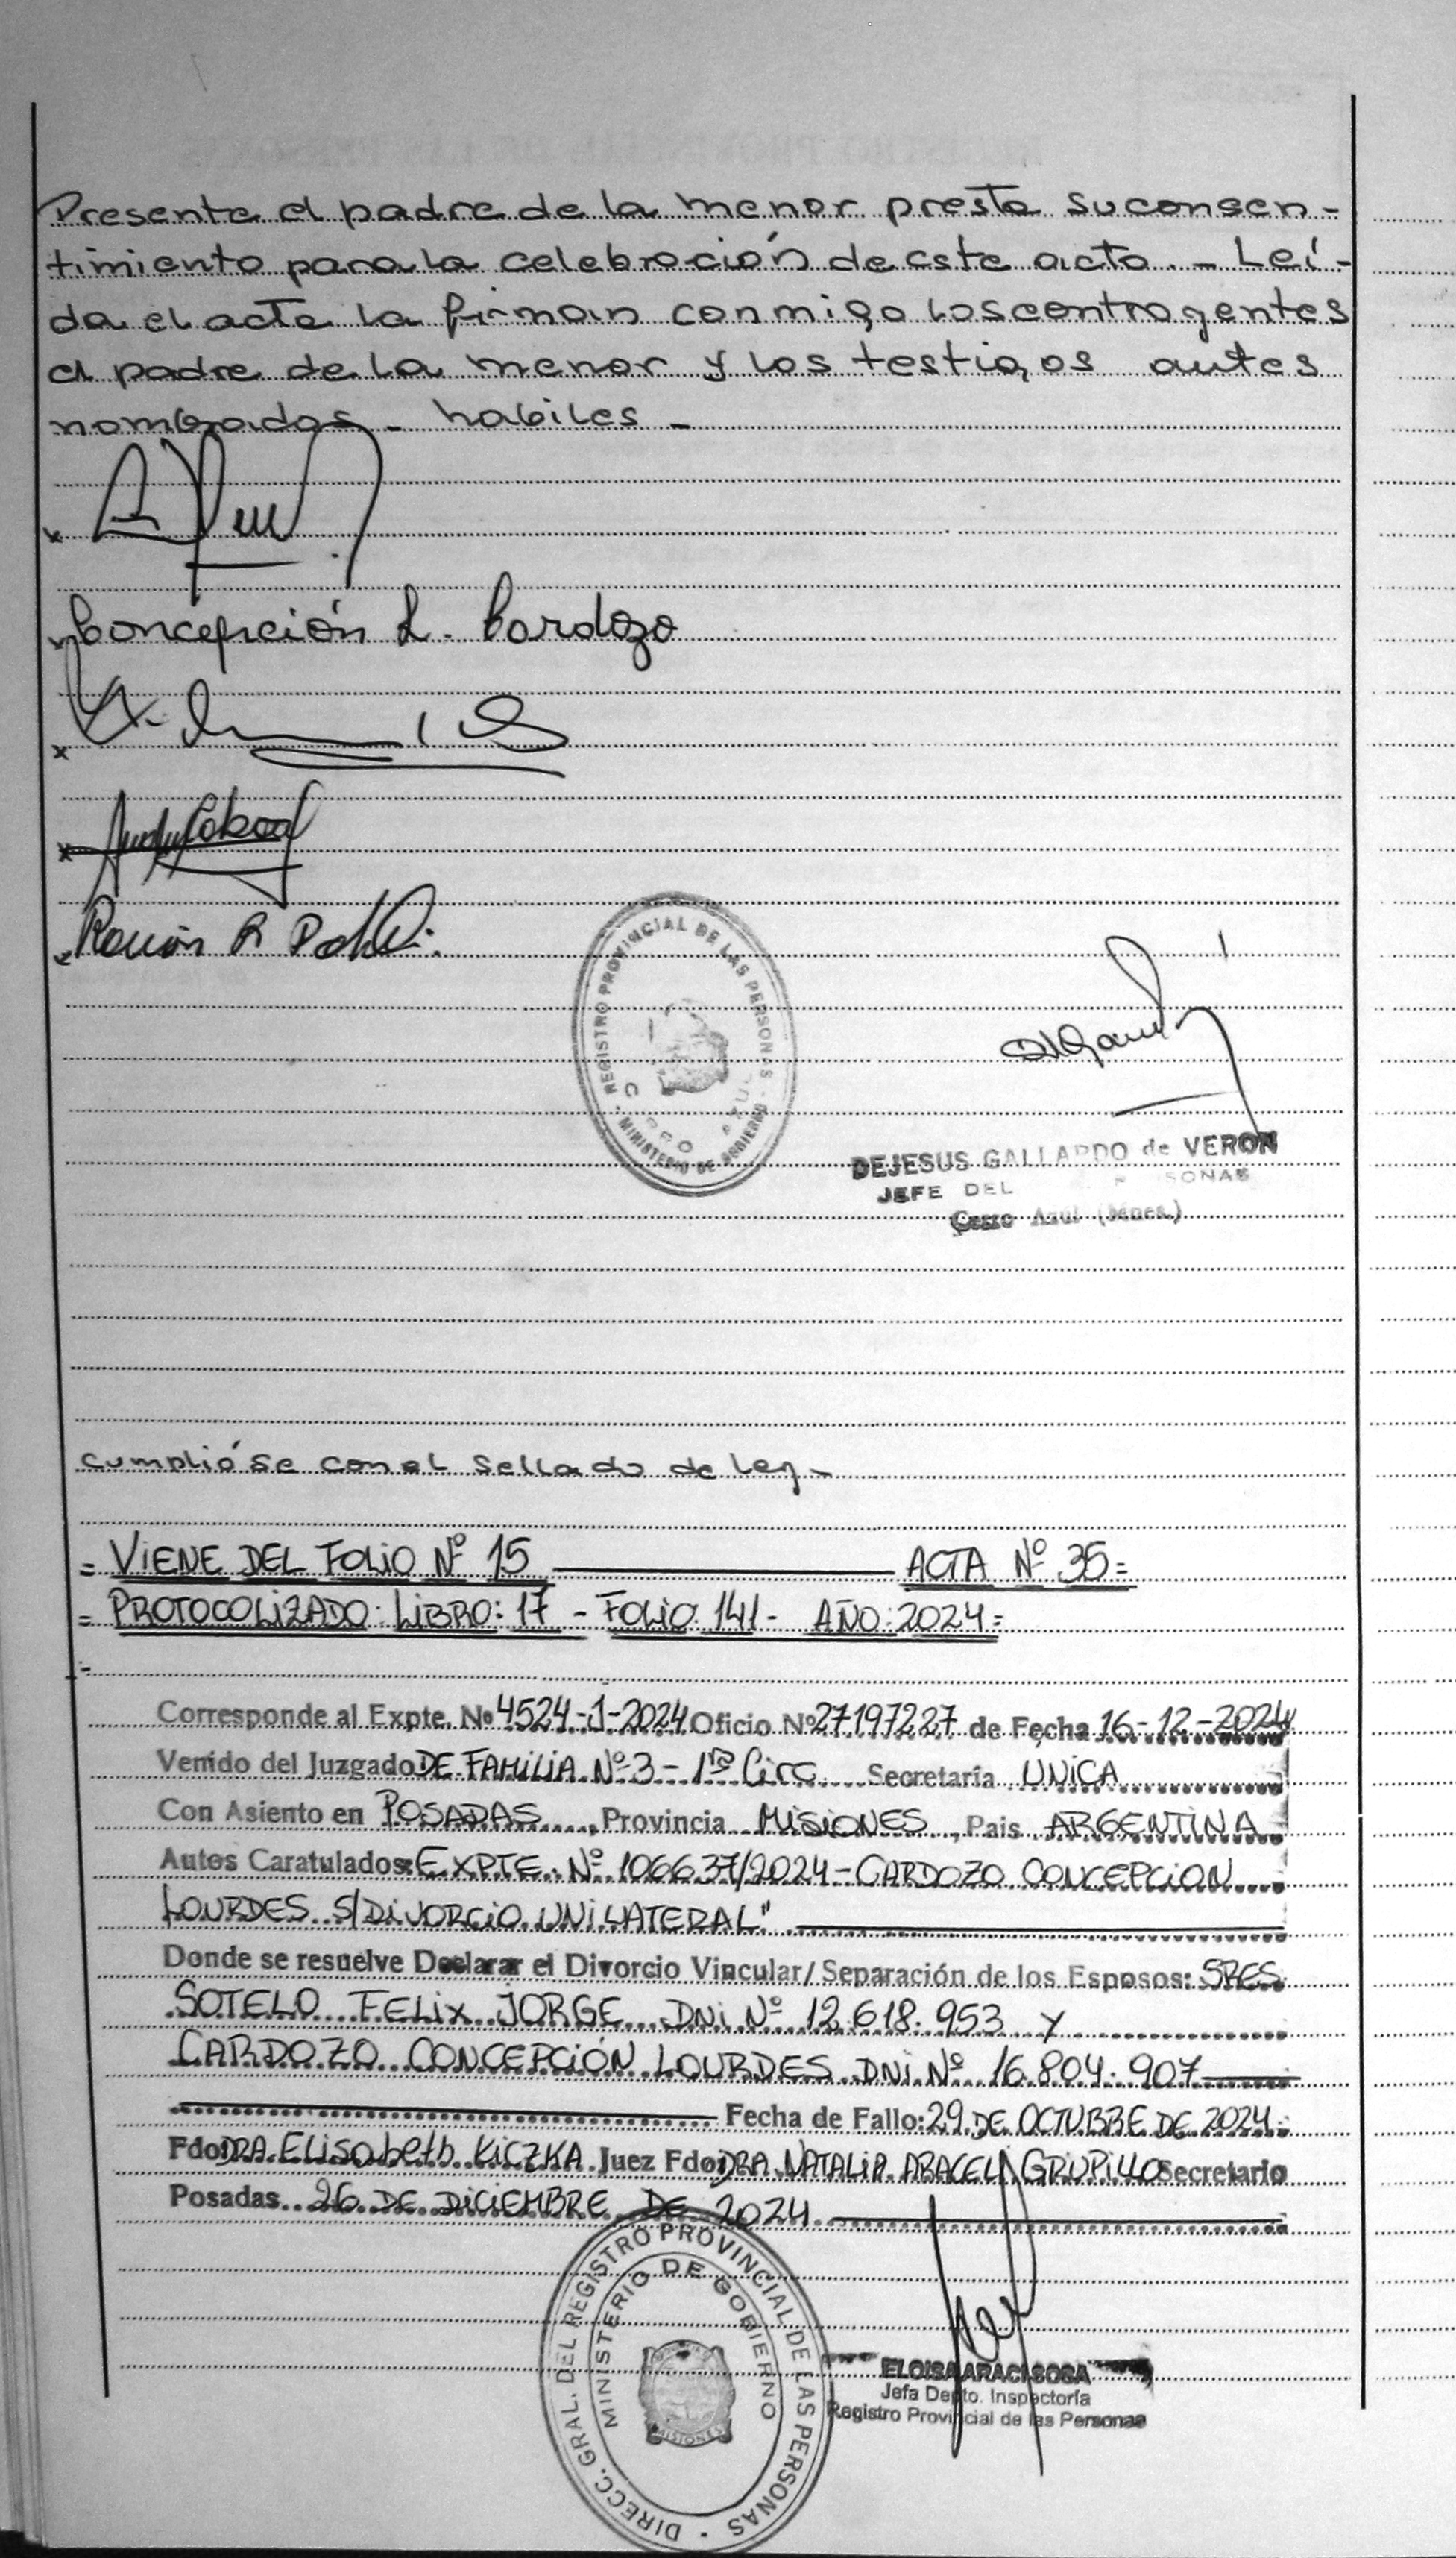 Presente el padre de la menor presta su consen-
timiento para la celebración de este acto. - Leí-
da el acta la firman conmigo los contrayentes
el padre de la menor y los testigos antes
nombrados - habiles -
x
x Concepción L. Cardozo
x
x
x Ramón R
REGISTRO PROVINCIAL DE LAS PERSONAS
- MINISTERIO DE GOBIERNO -
DEJESUS GALLARDO de VERON
JEFE DEL PERSONAS
Cerro Azul (Mnes.)
Cumplióse con el sellado de ley -
= VIENE DEL FOLIO Nº 15 ACTA Nº 35=
= PROTOCOLIZADO: LIBRO: 17 - FOLIO 141 - AÑO: 2024=
Corresponde al Expte. Nº 4524-J-2024 Oficio Nº 27197227 de Fecha 16-12-2024
Venido del Juzgado DE FAMILIA Nº 3 - 1ra Circ. Secretaría UNICA
Con Asiento en POSADAS, Provincia MISIONES, Pais ARGENTINA
Autos Caratulados: EXPTE. Nº 106637/2024 - CARDOZO CONCEPCION
LOURDES S/DIVORCIO UNILATERAL"
Donde se resuelve Declarar el Divorcio Vincular/Separación de los Esposos: SRES
SOTELO FELIX JORGE DNI Nº 12.618.953 Y
CARDOZO CONCEPCIÓN LOURDES DNI Nº 16.804.907
Fecha de Fallo: 29 DE OCTUBRE DE 2024.
Fdo: DRA. Elisabeth KICZKA Juez Fdo: DRA NATALIA ARACELI GRUPILLO Secretario
Posadas 26 DE DICIEMBRE DE 2024
DIRECC. GRAL. DEL REGISTRO PROVINCIAL DE LAS PERSONAS -
MINISTERIO DE GOBIERNO
MISIONES
ELOISA ARACI SOSA
Jefa Depto. Inspectoría
Registro Provincial de las Personas